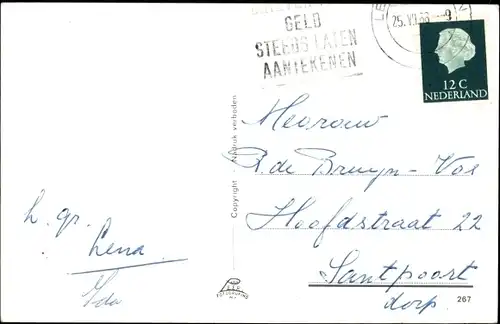 GELD
STEEDS LATEN
AANTEKENEN
25.VII.66
12 C
NEDERLAND
Mevrouw
P. de Bruyn-Vos
Hoofdstraat 22
Santpoort
dorp.
h. gr.
Lena
Ida
Copyright - Nadruk verboden
267